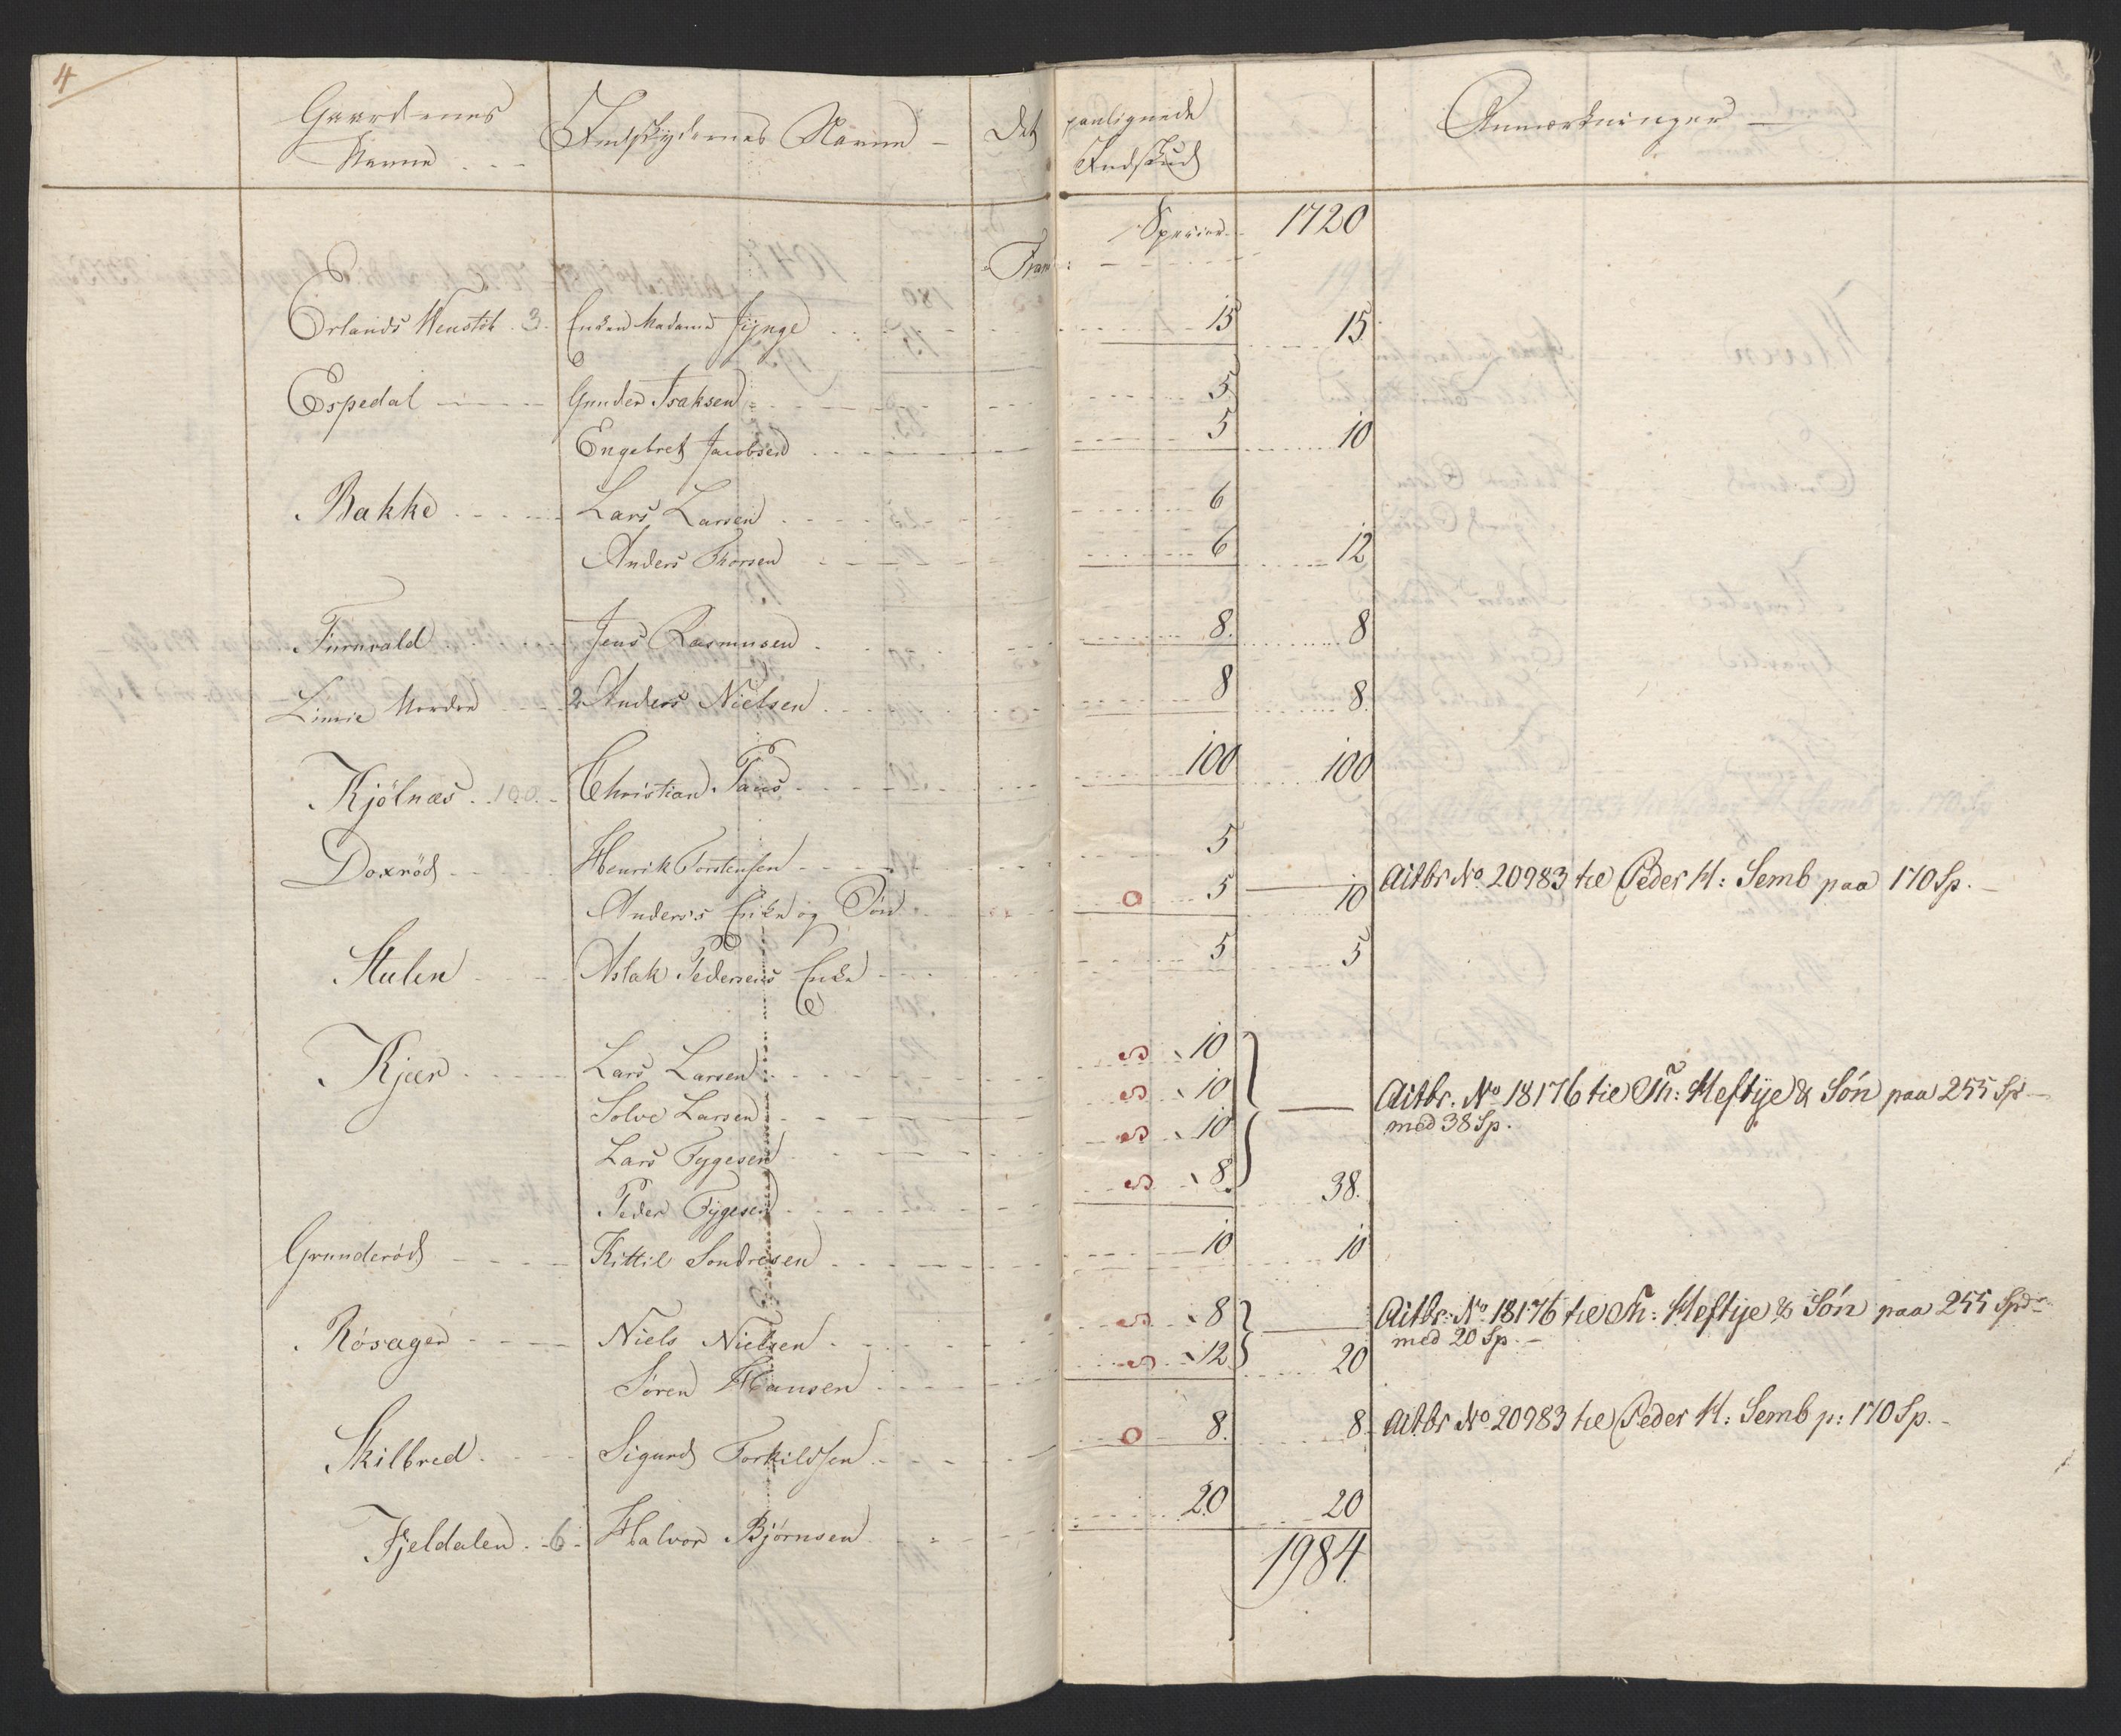 4
Gaardenes Navne Indskydernes Navne Det paalignede Indskud Anmærkninger
Species 1720
Tran
Örlands Wenstöb 3 Enken Madame Jÿnge 15 15
Espedal Gunder Isaksen 5
Engebret Jacobsen 5 10
Bakke Lars Larsen 6
Anders Thorsen 6 12
Furuvald Jens Rasmusen 8. 8
Limie Nordre 2 Anders Nielsen 8 8.
Kjölnæs 100 Christian Paus 100 100
Doxröd Henrik Torstensen 5
Anders's Enke og Sön o 5 10 Aitbr No 20983 til Peder H: Semb paa 170 Sp.
Stulen Aslak Pedersens Enke 5 5
Kjær Lars Larsen 10
Solve Larsen 10 Aitbr. No 18176 til Th: Heftye & Són paa 255 Sp
Lars Tygesen 10 med 38 Sp.
Peder Tygesen 8. 38.
Grunderöd Kittil Sondresen 10 10
Rósager Niels Nielsen 8 Aitbr: No 18176 til Th: Heftye & Són paa 255 Spd
Sören Hansen 12 20 med 20 Sp.
Skilbred Sigurd Torkildsen o 8. 8 Aitbr No 20983 til Peder H: Semb p: 170 Sp.
Fjeldalen 6 Halvor Björnsen 20 20
1984.